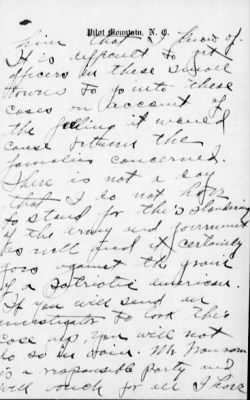 Pilot Mountain, N. C.
him that I know of.
It is difficult to get
officers in these small
towns to go into these
cases on account of
the feeling it would
cause between the
families concerned.
There is not a day
that I do not have
to stand for this slandering
of the army and government
as well and it certainly
goes against the grain
of a patriotic american.
If you will send an
investigator to look this
case up you will not
do so in vain. Mr Ransom
is a responsible party and
will vouch for all I have